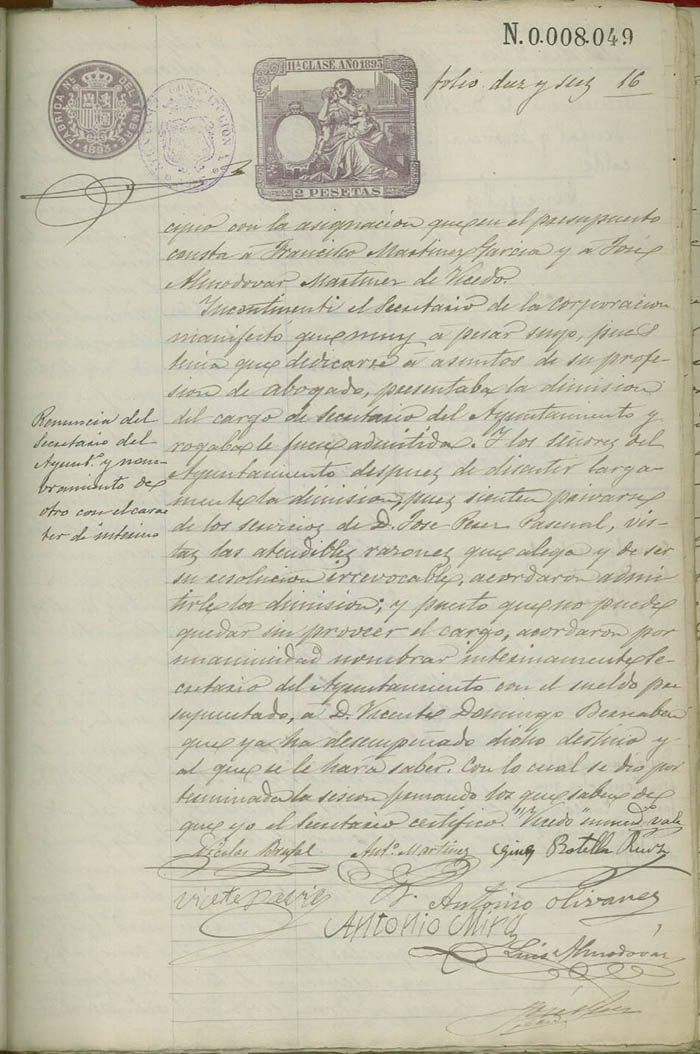 N.0.008.049
FÁBRICA NL. DEL TIMBRE
1893
11ª CLASE AÑO 1893
2 PESETAS
folio diez y seis 16
con la asignacion que en el presupuesto
consta á Francisco Martinez Garcia y á José
Almodovar Martinez de Vicedo.
Incontinenti el Secretario de la corporacion
manifestó que muy á pesar suyo, pues
tenia que dedicarse á asuntos de su profe-
sion de abogado, presentaba la dimision
del cargo de secretario del Ayuntamiento y
rogaba le fuese admitida. Y los señores del
Ayuntamiento despues de discutir larga-
mente la dimision, pues sienten privarse
de los servicios de D. José Perez Pascual, vis-
tas las atendibles razones que alega y de ser
su resolucion irrevocable, acordaron admi-
tirle la dimision; y puesto que no puede
quedar sin proveer el cargo, acordaron por
unanimidad nombrar interinamente Se-
cretario del Ayuntamiento con el sueldo pre-
supuestado, á D. Vicente Domingo Bernabeu
que ya ha desempeñado dicho destino y
al que se le hará saber. Con lo cual se dió por
terminada la sesion firmando los que saben de
que yo el Secretario certifico. "Vicedo" enmdº vale
Renuncia del
Secretario del
Ayuntº y nom-
bramiento de
otro con el carac
ter de interino
Antº Martinez Gines Botella Ruiz
Antonio Olivares
Antonio Mira
Luis Almodovar